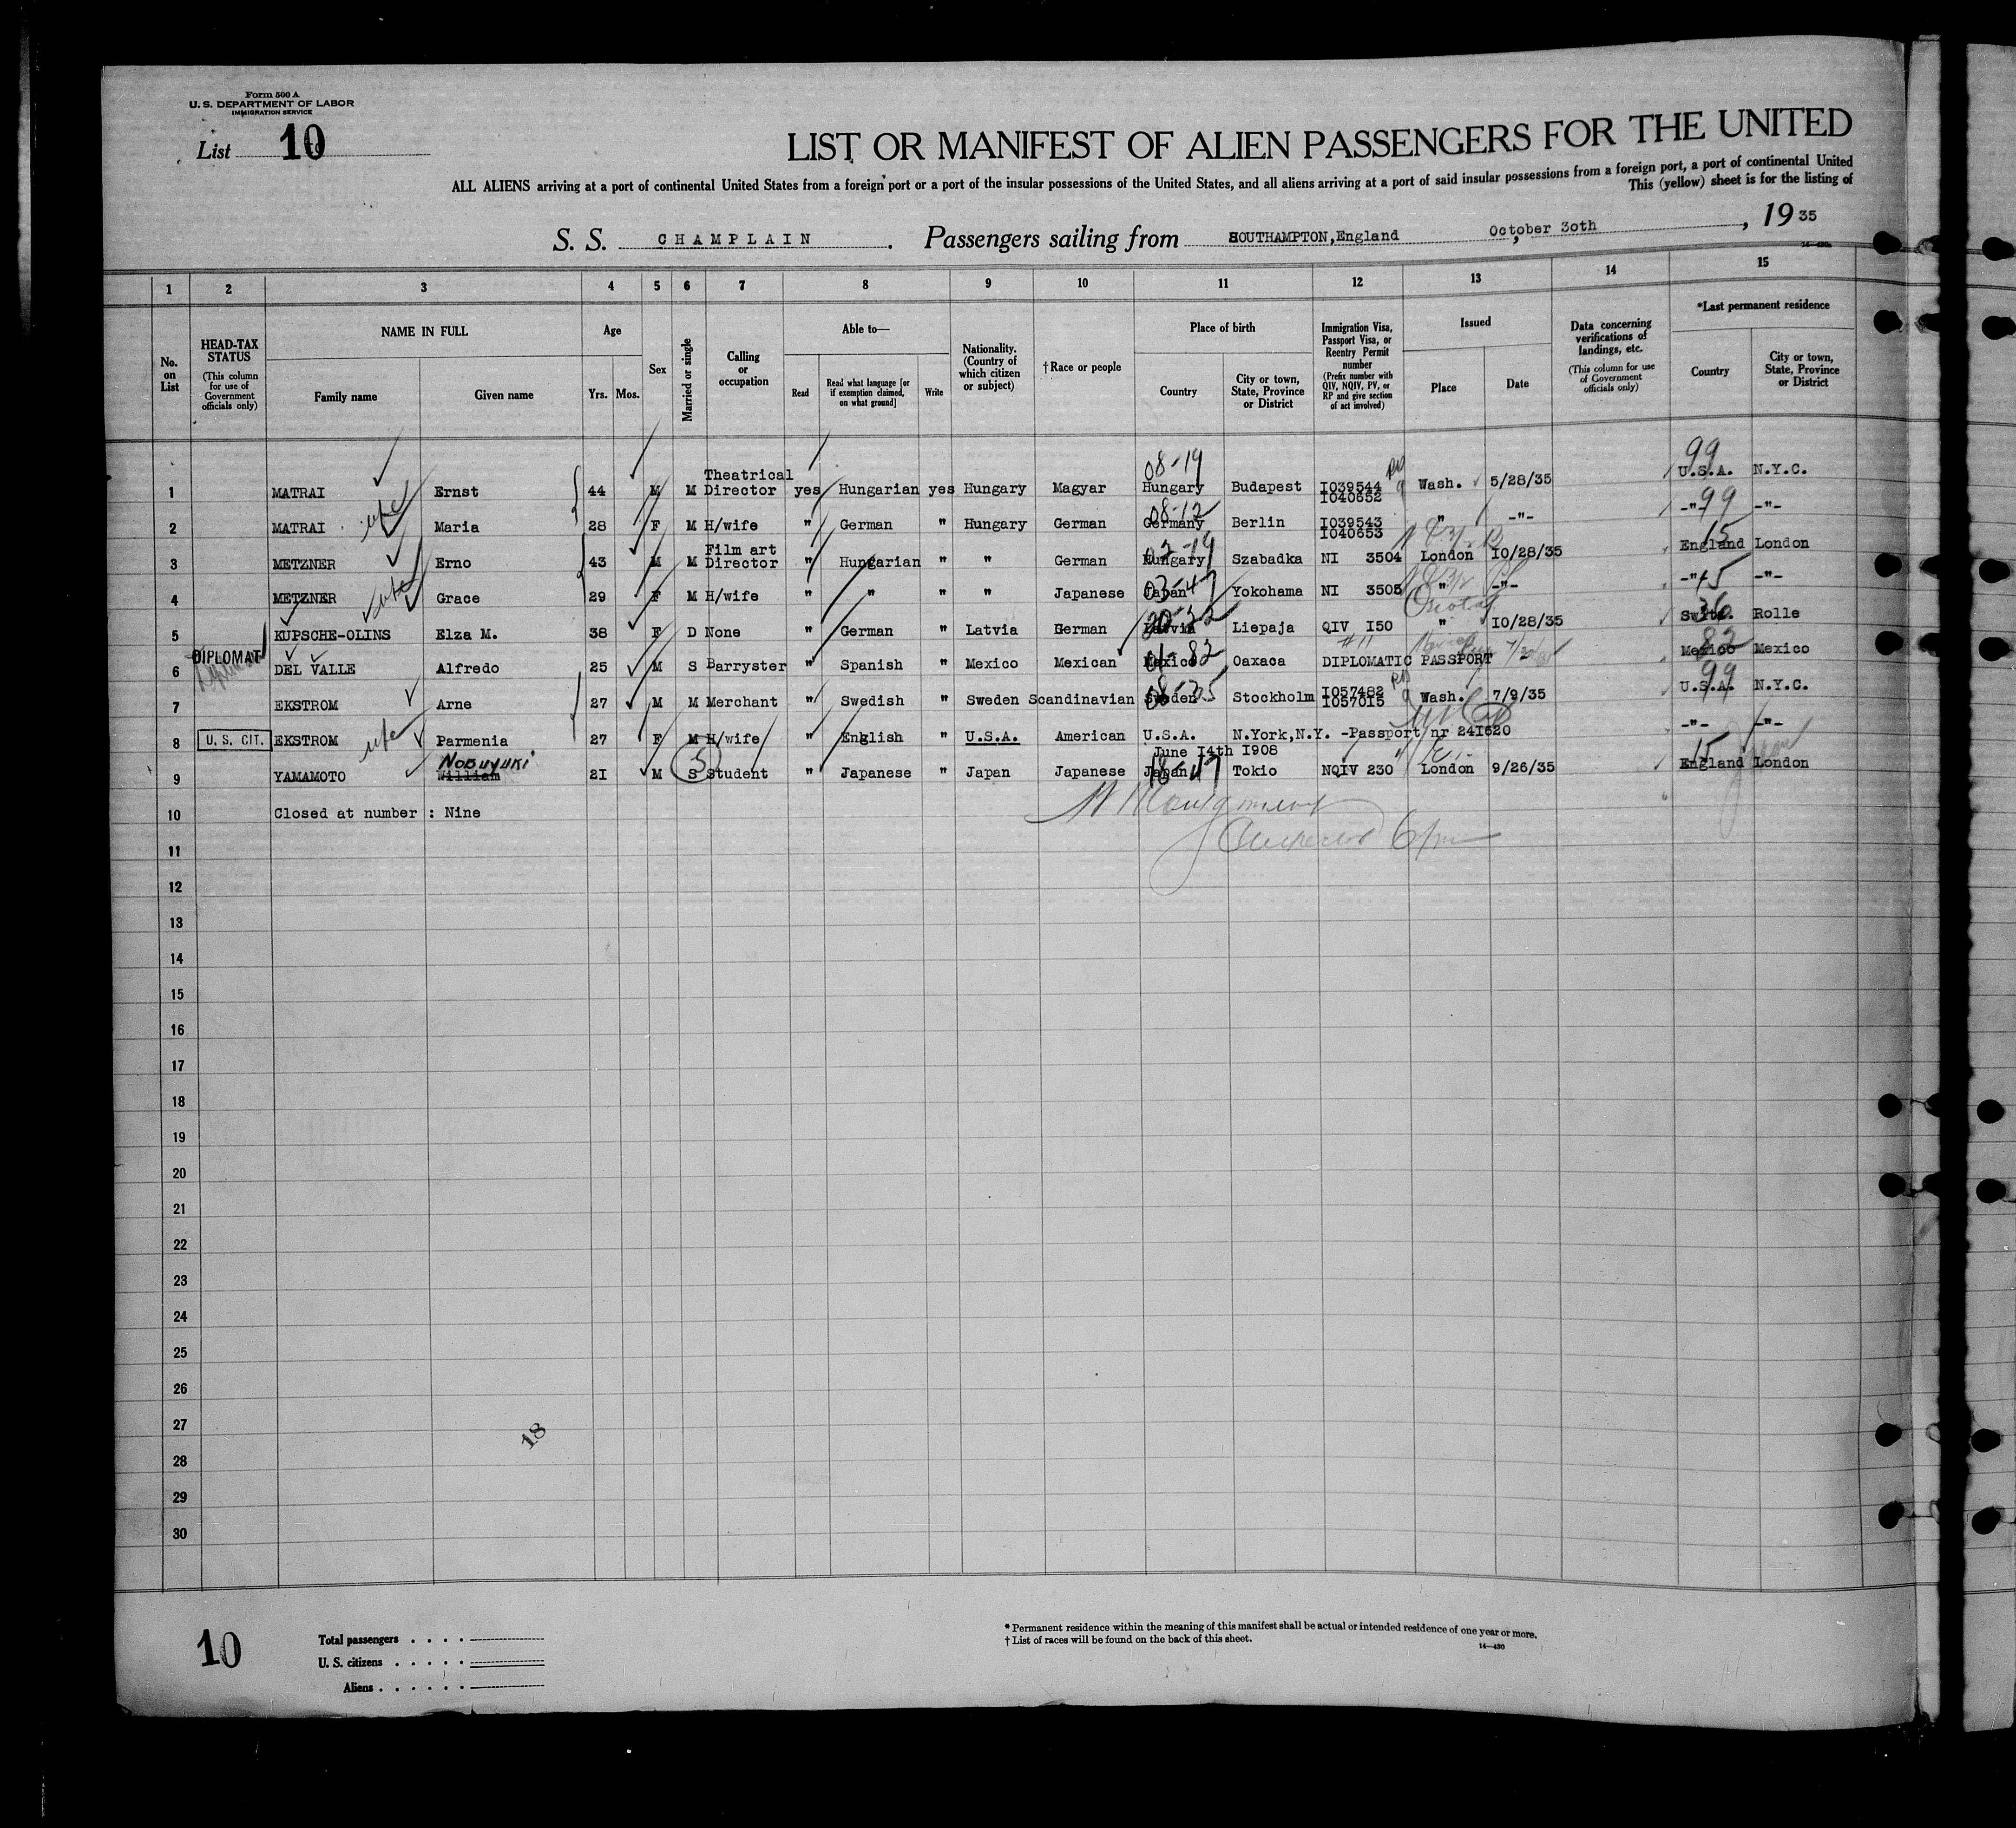 Form 500 A
U. S. DEPARTMENT OF LABOR
IMMIGRATION SERVICE
List 10
LIST OR MANIFEST OF ALIEN PASSENGERS FOR THE UNITED
ALL ALIENS arriving at a port of continental United States from a foreign port or a port of the insular possessions of the United States, and all aliens arriving at a port of said insular possessions from a foreign port, a port of continental United
This (yellow) sheet is for the listing of
S. S. CHAMPLAIN. Passengers sailing from SOUTHAMPTON, England October 3oth, 1935
14—430
1 2 3 4 5 6 7 8 9 10 11 12 13 14 15
No. on List
HEAD-TAX STATUS (This column for use of Government officials only)
NAME IN FULL Family name Given name
Age Yrs. Mos.
Sex
Married or single
Calling or occupation
Able to— Read Read what language [or if exemption claimed, on what ground] Write
Nationality. (Country of which citizen or subject)
†Race or people
Place of birth Country City or town, State, Province or District
Immigration Visa, Passport Visa, or Reentry Permit number (Prefix number with QIV, NQIV, PV, or RP and give section of act involved)
Issued Place Date
Data concerning verifications of landings, etc. (This column for use of Government officials only)
*Last permanent residence Country City or town, State, Province or District
08-19 99
1 MATRAI Ernst 44 M M Theatrical Director yes Hungarian yes Hungary Magyar Hungary Budapest I039544 I040652 Wash. 5/28/35 U.S.A. N.Y.C.
08-12 99
2 MATRAI wife Maria 28 F M H/wife " German " Hungary German Germany Berlin I039543 I040653 " -"- -"- -"-
15
3 METZNER Erno 43 M M Film art Director " Hungarian " " German Hungary Szabadka NI 3504 London I0/28/35 England London
03-47 15
4 METZNER wife Grace 29 F M H/wife " " " " Japanese Japan Yokohama NI 3505 " -"- -"- -"-
36
5 KUPSCHE-OLINS Elza M. 38 F D None " German " Latvia German Latvia Liepaja QIV I50 " I0/28/35 Switz. Rolle
#11 82
6 DIPLOMAT DEL VALLE Alfredo 25 M S Barryster " Spanish " Mexico Mexican Mexico Oaxaca DIPLOMATIC PASSPORT Mexico Mexico
99
7 EKSTROM Arne 27 M M Merchant " Swedish " Sweden Scandinavian Sweden Stockholm I057482 I057015 Wash. 7/9/35 U.S.A. N.Y.C.
8 U. S. CIT. EKSTROM wife Parmenia 27 F M H/wife " English " U.S.A. American U.S.A. N.York,N.Y. -Passport nr 24I620 -"- -"-
June I4th I908
Nobuyuki 15
9 YAMAMOTO William 2I M S Student " Japanese " Japan Japanese Japan Tokio NQIV 230 London 9/26/35 England London
10 Closed at number : Nine
11
12
13
14
15
16
17
18
19
20
21
22
23
24
25
26
27
18
28
29
30
10
Total passengers . . . .
U. S. citizens . . . . .
Aliens . . . . . .
* Permanent residence within the meaning of this manifest shall be actual or intended residence of one year or more.
† List of races will be found on the back of this sheet.
14—430